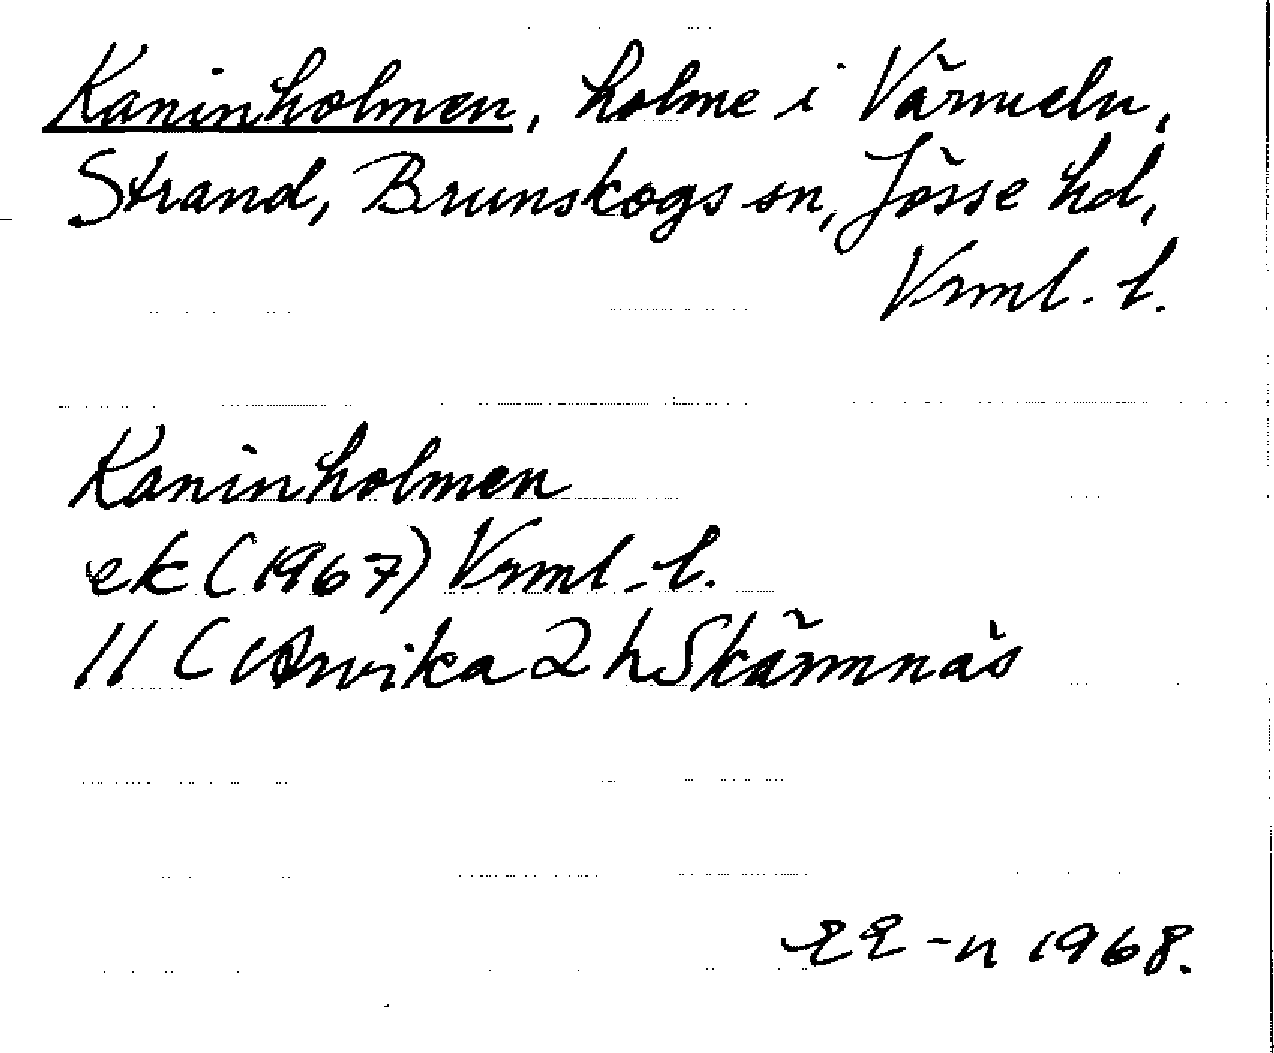 Kaninholmen, holme i Värmeln,
Strand, Brunskogs sn, Jösse hd,
Vrml. l.
Kaninholmen
ek (1967) Vrml. l.
11 C Arvika 2 h Skärmnäs
EE-n 1968.